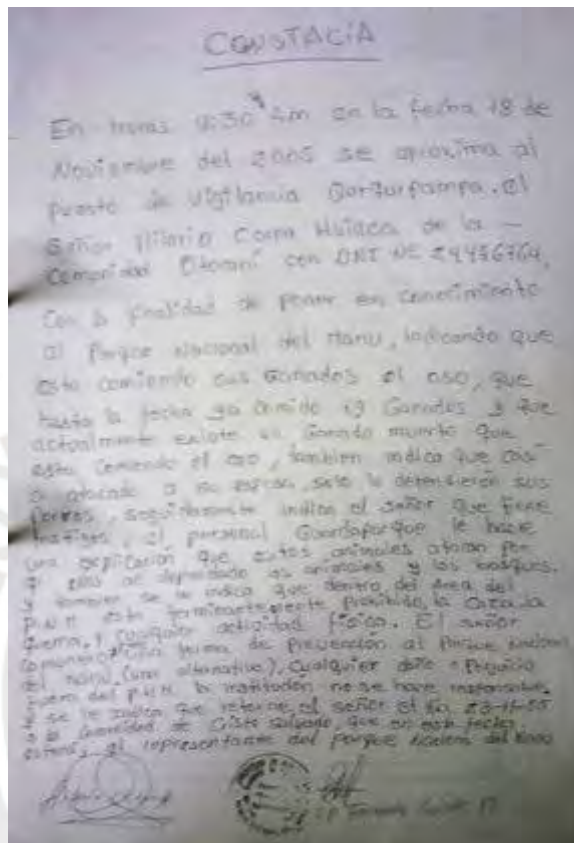 CONSTACIA
En horas 9:30 Am en la fecha 18 de
Noviembre del 2005 se aproxima al
puesto de Vigilancia Qorqurpampa. el
Señor Hilario Ccapa Huisca de la -
Comunidad Otocani con DNI Nº 24486764,
Con la finalidad de poner en conocimiento
al Parque Nacional del Manu, indicando que
esta comiendo sus Ganados el oso, que
hasta la fecha ya comido 19 Ganados y que
actualmente existe un Ganado muerto que
esta comiendo el oso, tambien indica que casi
a atacado a su esposa, solo lo detensieron sus
perros, seguidamente indica el señor que tiene
testigos, el personal Guardaparque le hace
una explicación que estos animales atacan por
q' ellos an depredado los animales y los bosques.
y tambien se le indica que dentro del Area del
P.N.M esta terminantemente Prohibido, la Caza, la
quema, y cualquier actividad física. El señor
comunero forma de Prevención al Parque Nacional
del Manu, (una alternativa), cualquier daño o Perjuicio
fuera del P.N.M. la institución no se hace responsable.
y se le indica que retorne el señor el dia 23-11-05
a la Comunidad de Ccste Salgado, que en esa fecha
estará, el representante del parque Nacional del Manu